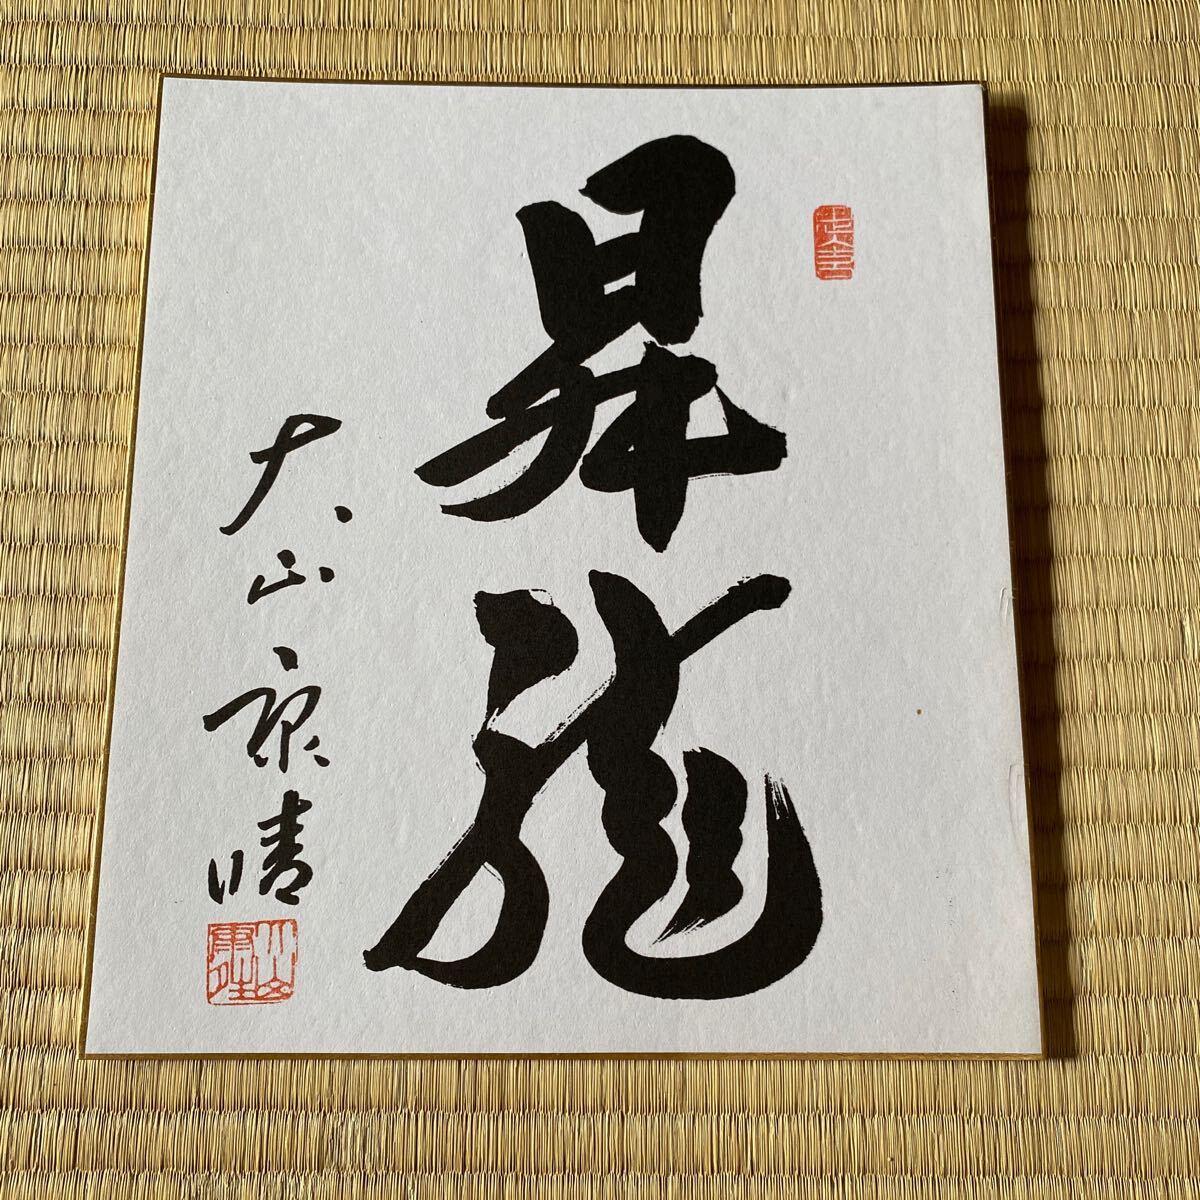 昇龍
大山康晴